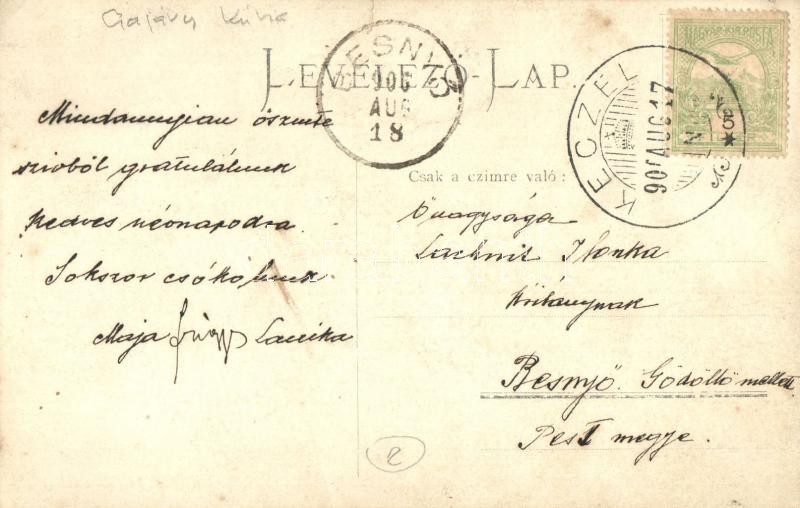 LEVELEZŐ-LAP.
BESNYŐ
906
AUG
18
KECZEL
906 AUG 17
MAGYAR KIR. POSTA
Mindannyian őszinte
szivből gratulálunk
Kedves névnapodra.
Sokszor csókolunk
Maja Lacika
Csak a czimre való:
Ő nagysága
Lachnit Ilonka
Besnyő. Gödöllő mellett
Pest megye.
2